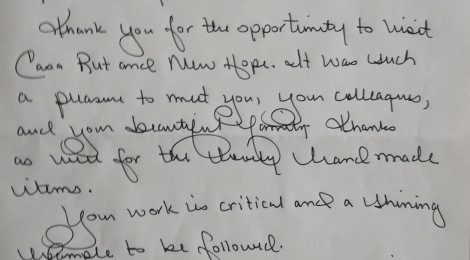 Thank you for the opportunity to visit
Casa But and New Hope. It was such
a pleasure to meet you, your colleagues,
and your beautiful family. Thanks
as well for the lovely handmade
items.
Your work is critical and a shining
example to be followed.